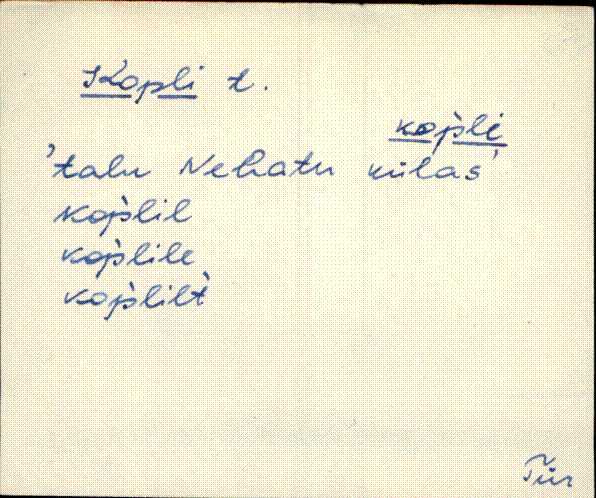 Kopli t.
kop̀li
'talu Nehatu külas'
kop̀lil
kop̀lile
kop̀lilt̀
Tür